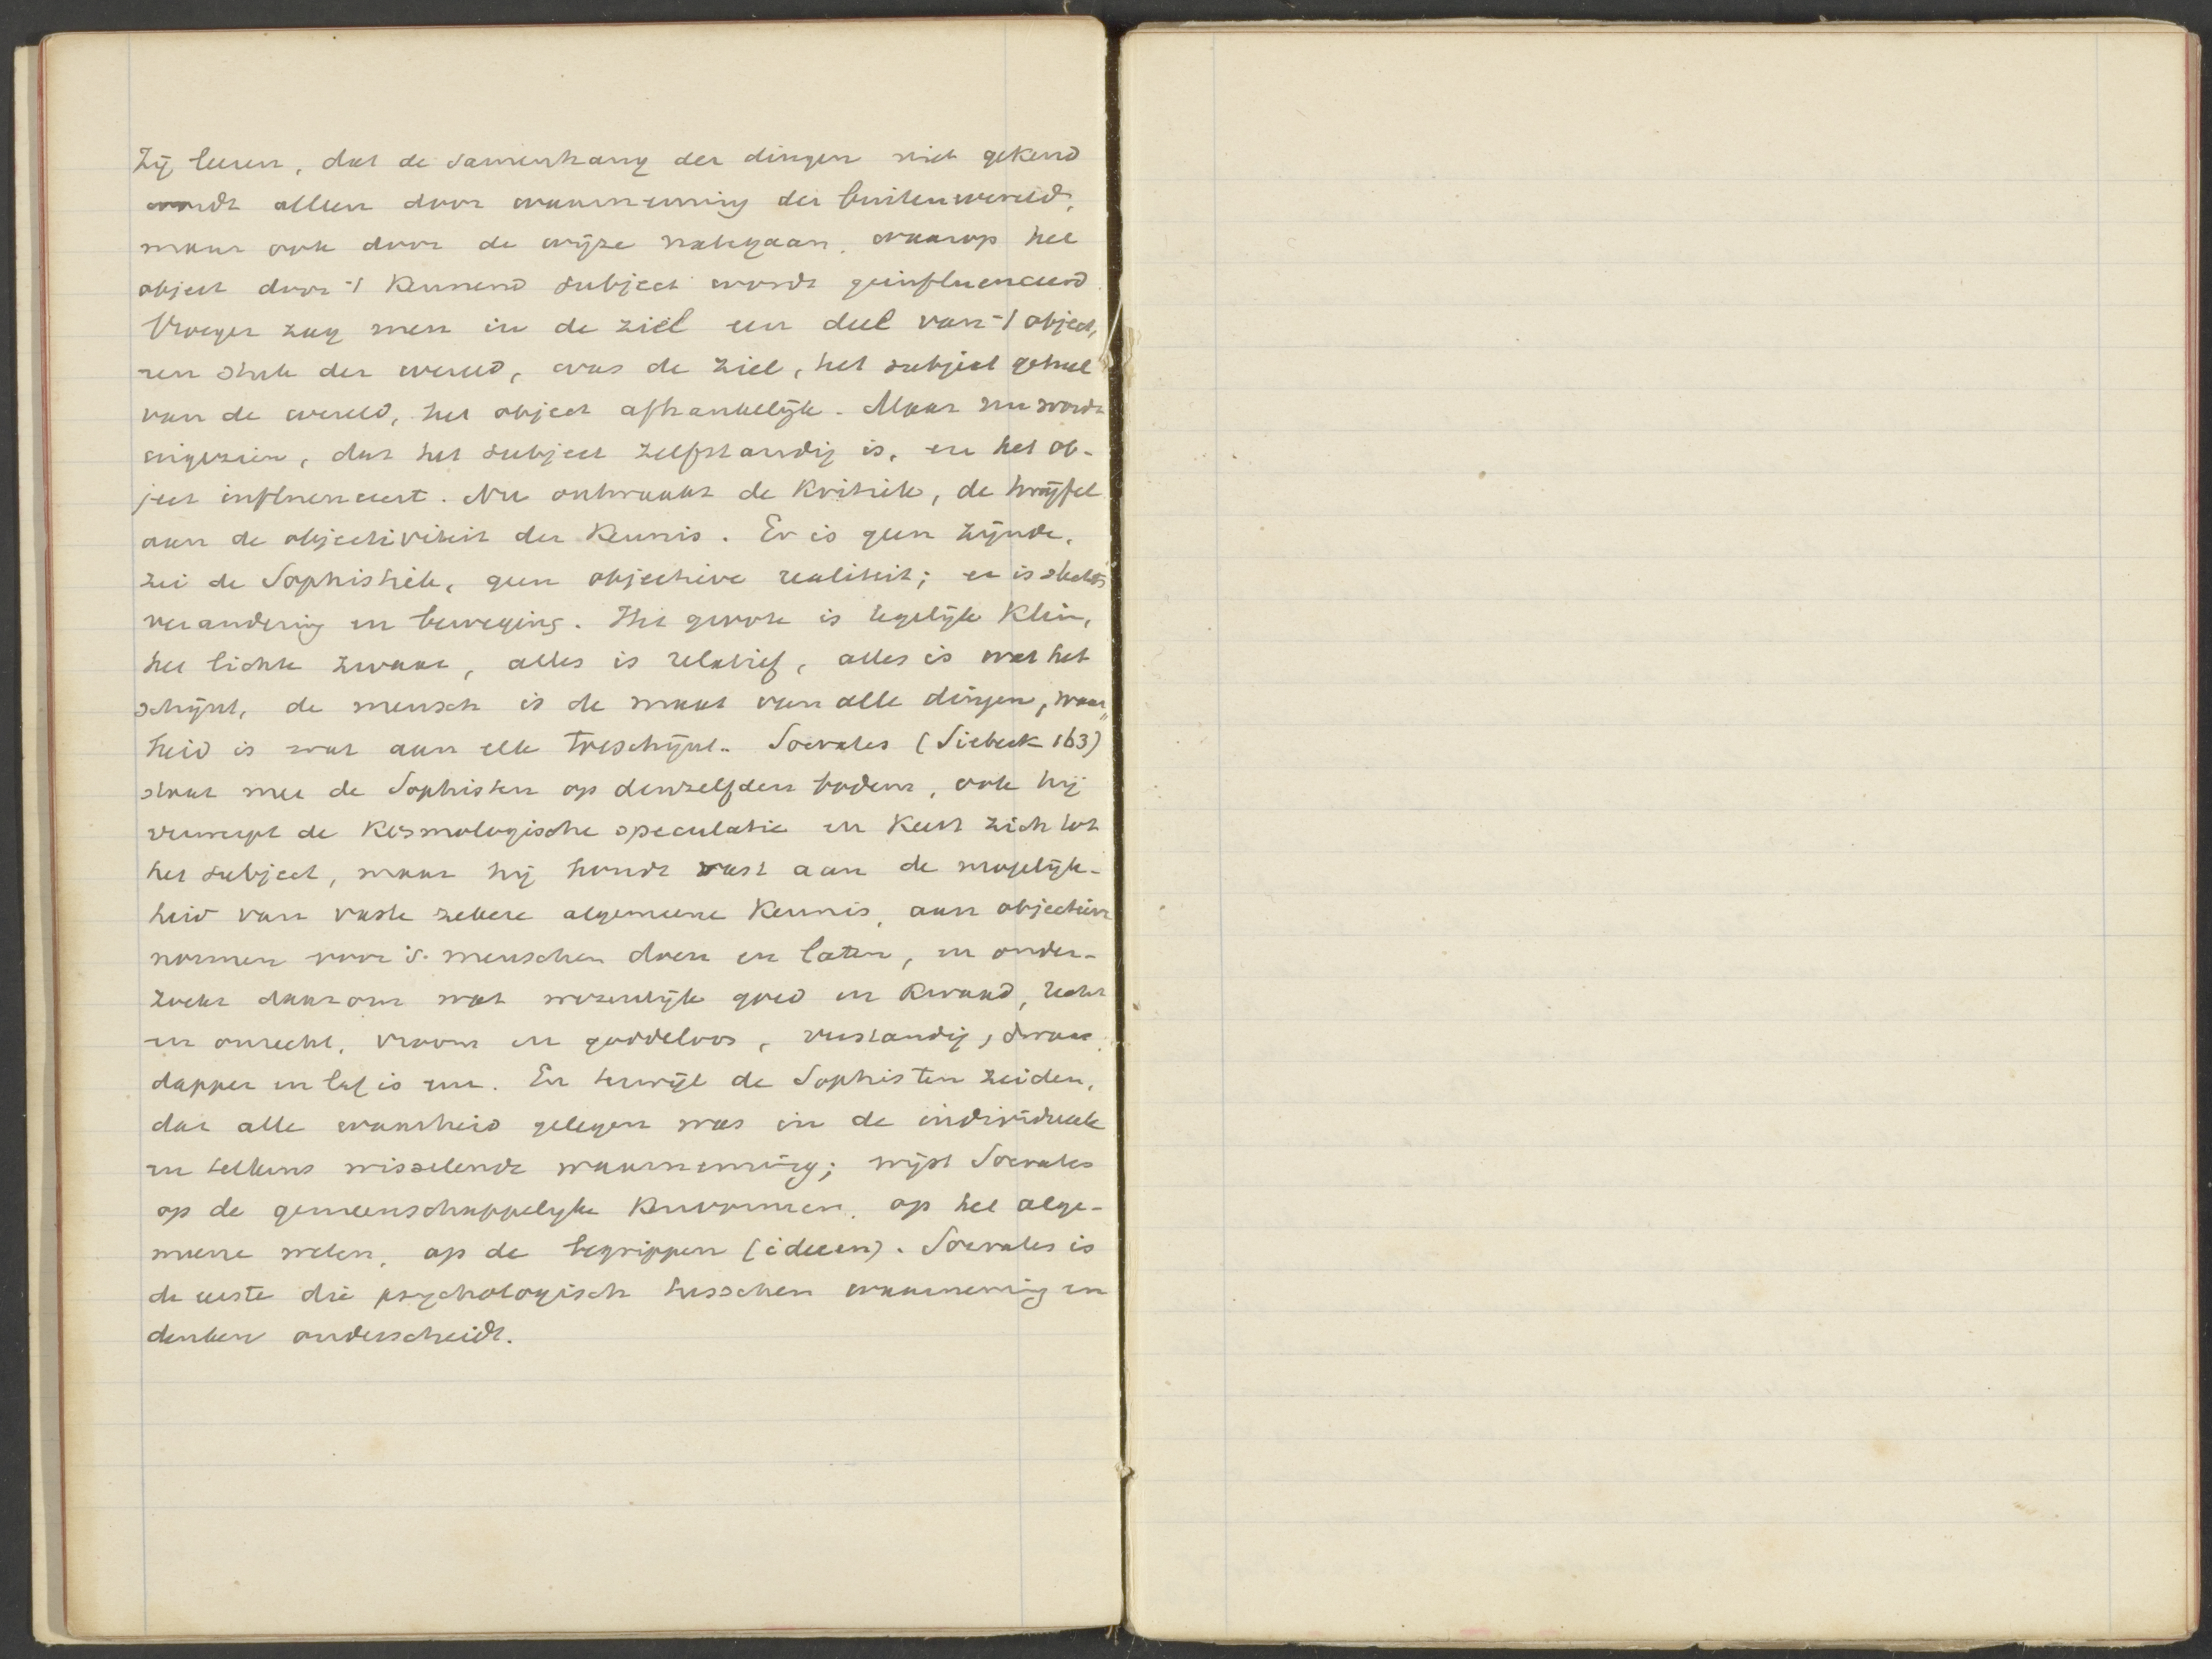 Zij leeren, dat de samenhang der dingen niet gekend
wordt alleen door waarneming der buitenwereld,
maar ook door de wijze nategaan, waarop het
object door 't kennend subject wordt geinfluenceerd.
Vroeger zag men in de ziel een deel van 't object,
een stuk der wereld, was de ziel, het subject geheel
van de wereld, het object afhankelijk. Maar nu wordt
ingezien, dat het subject zelfstandig is, en het ob-
ject influenceert. Nu ontwaakt de Kritiek, de twijfel
aan de objectiviteit der Kennis. Er is geen zijnde,
zei de Sophistiek, geen objectieve realiteit; er is slechts
verandering en beweging. Het groote is tegelijk klein,
het lichte zwaar, alles is relatief, alles is wat het
schijnt, de mensch is de maat van alle dingen, waar„
heid is wat aan elk toeschijnt. Socrates (Siebeck 163)
staat met de Sophisten op denzelfden bodem, ook hij
verwerpt de Kosmologische speculatie en keert zich tot
het subject, maar hij houdt vast aan de mogelijk-
heid van vaste zekere algemeene Kennis, aan objectieve
normen voor 's menschen doen en laten, en onder-
zoekt daarom wat wezenlijk goed en kwaad, recht
en onrecht, vroom en goddeloos, verstandig, dwaas,
dapper en laf is enz. En terwijl de Sophisten zeiden,
dat alle waarheid gelegen was in de individueele
en telkens wisselende waarneming; wijst Socrates
op de gemeenschappelijke Kenvormen, op het alge-
meene weten, op de begrippen (ideeen). Socrates is
de eerste die psychologisch tusschen waarneming en
denken onderscheidt.